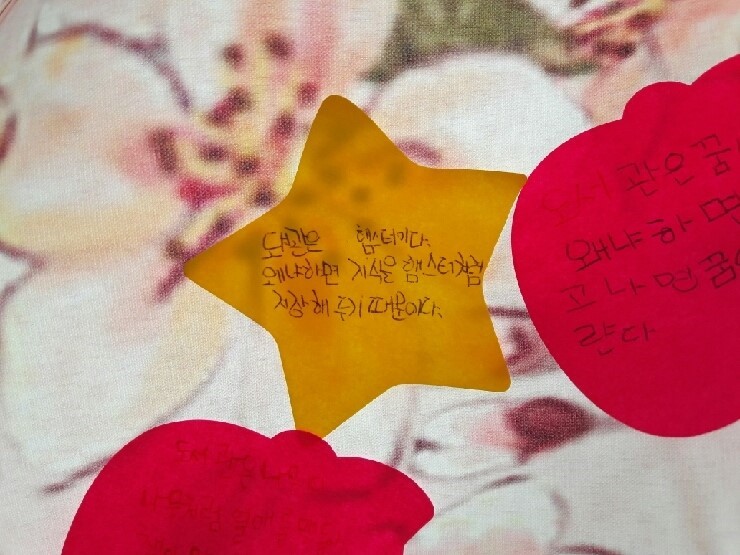 도서관은 햄스터이다.
왜냐하면 지식을 햄스터처럼
저장해 두기 때문이다.
도서관은 꿈
왜냐하면
고 나면 꿈
란다
도서관은
나무처럼